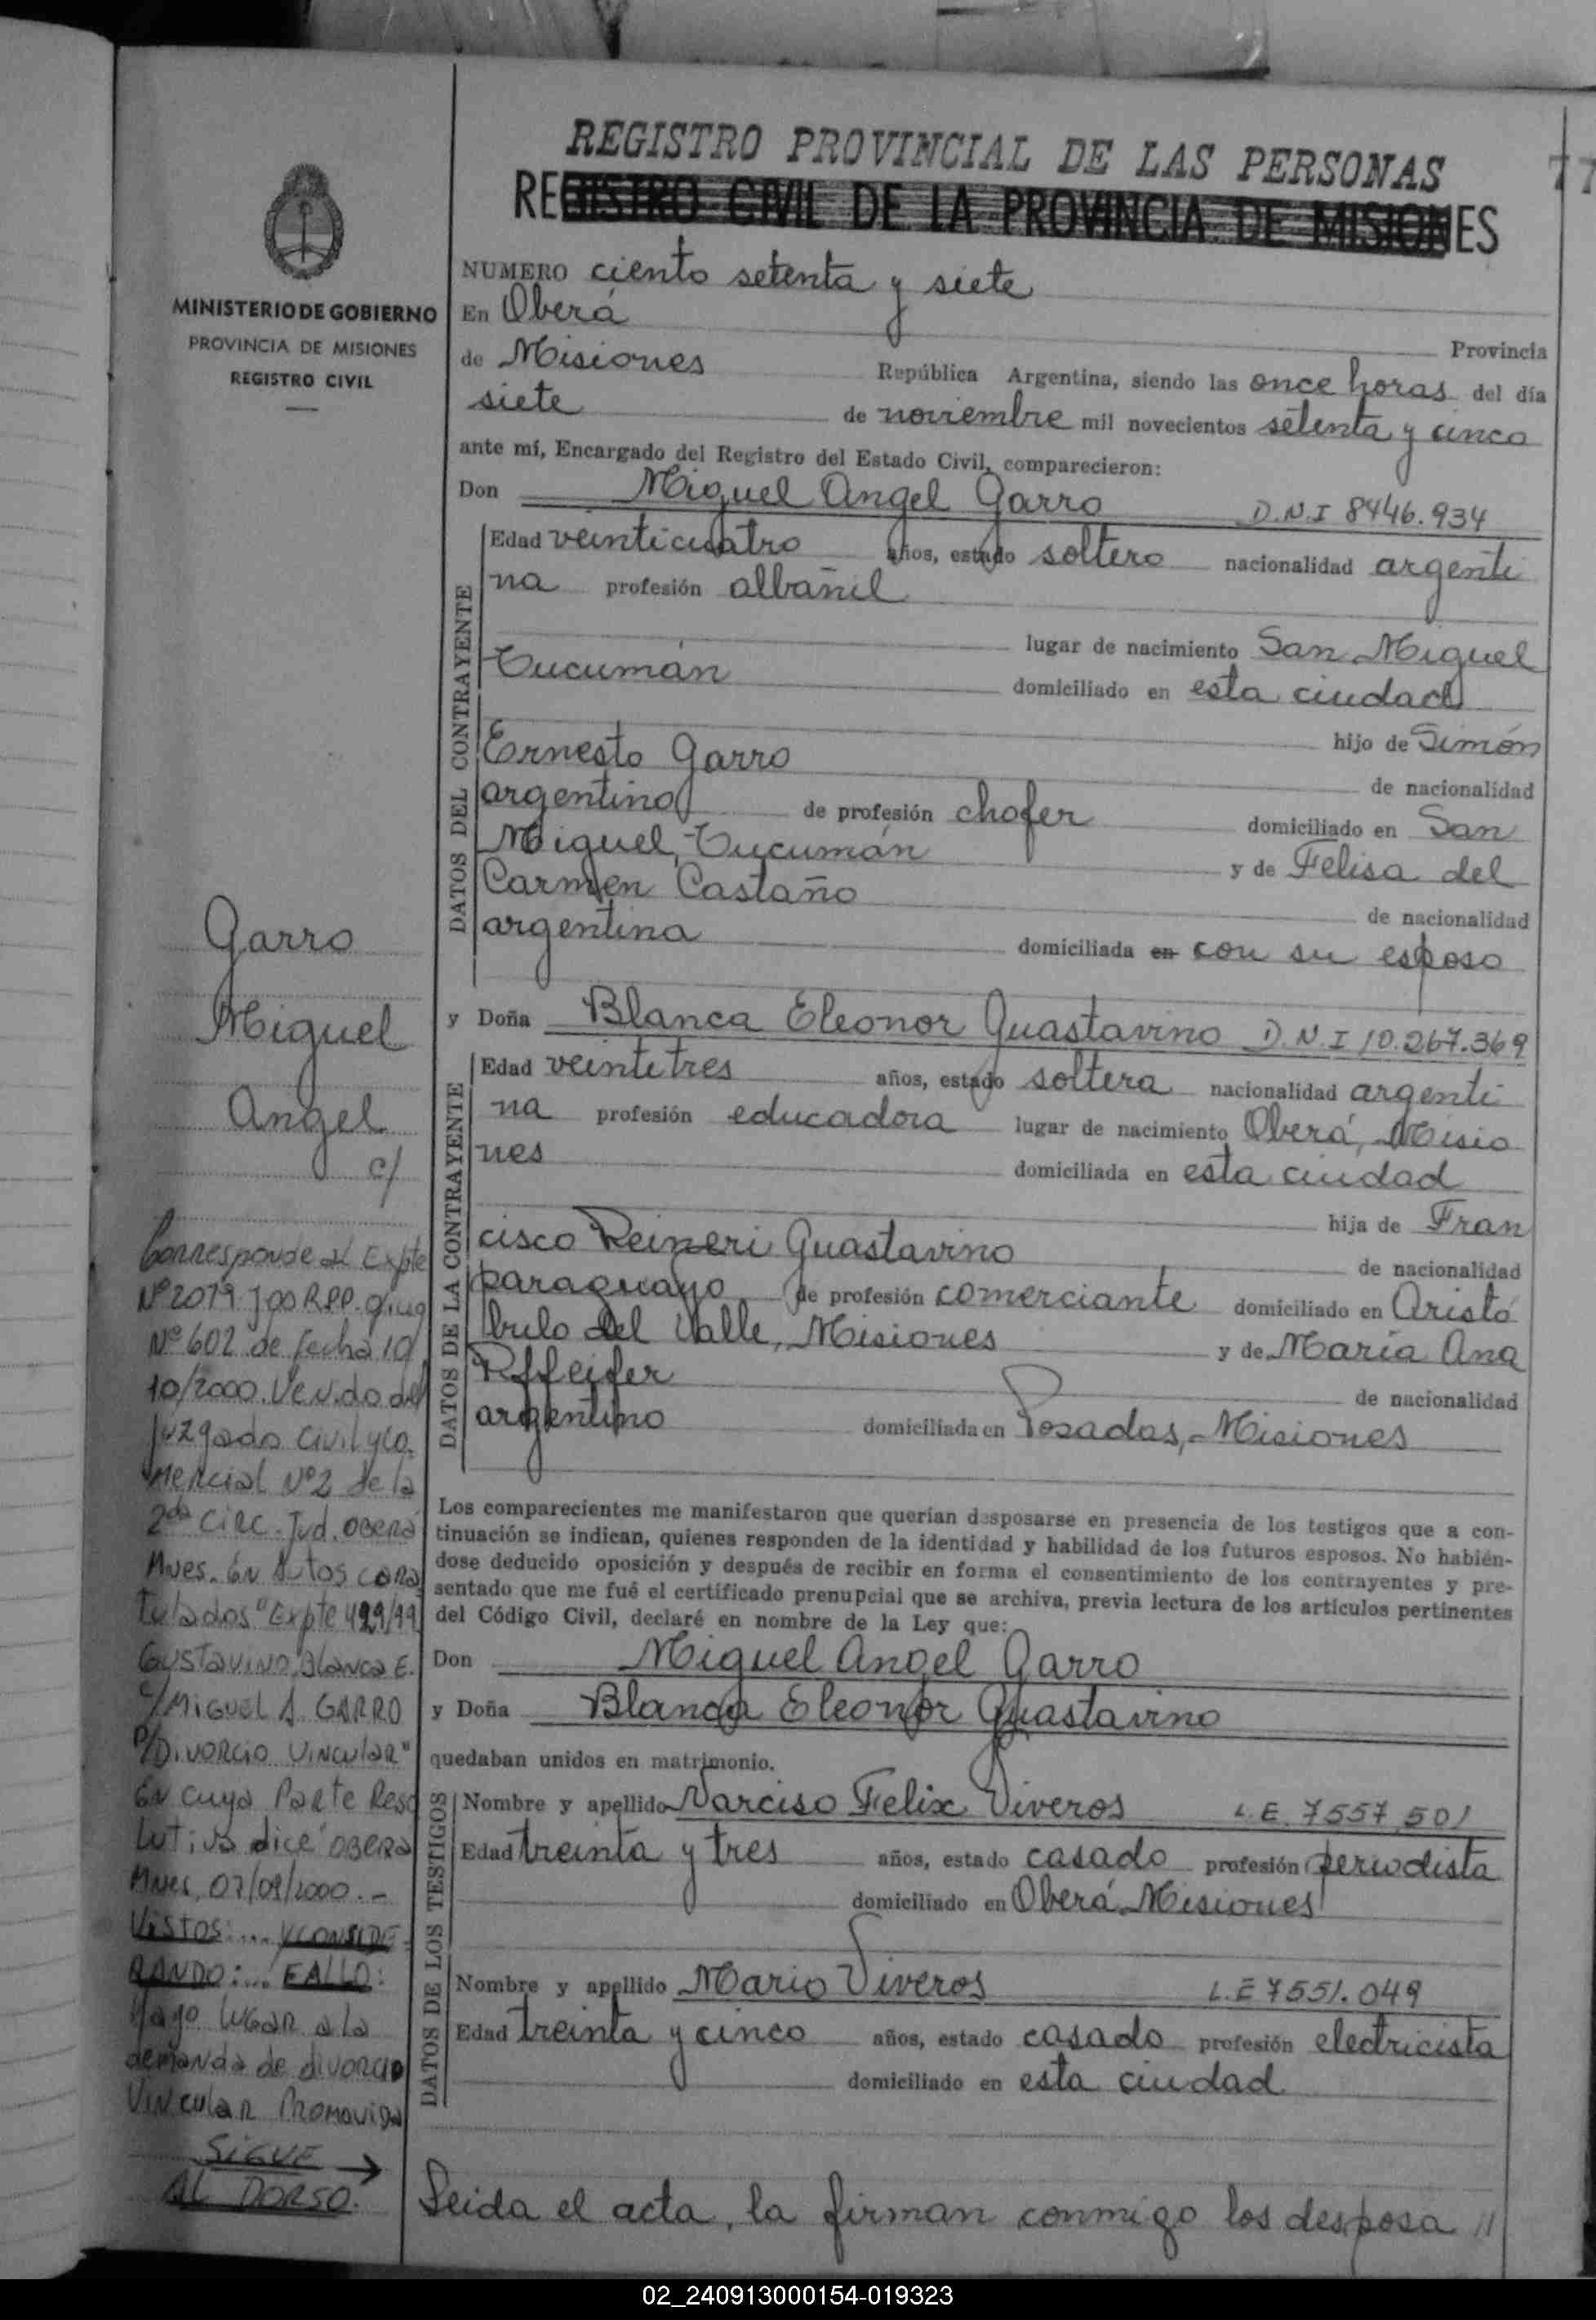 REGISTRO PROVINCIAL DE LAS PERSONAS
77
REGISTRO CIVIL DE LA PROVINCIA DE MISIONES
MINISTERIO DE GOBIERNO
PROVINCIA DE MISIONES
REGISTRO CIVIL
NUMERO ciento setenta y siete
En Oberá
Provincia
de Misiones República Argentina, siendo las once horas del día
siete de noviembre mil novecientos setenta y cinco
ante mí, Encargado del Registro del Estado Civil, comparecieron:
Don Miguel Angel Garro D.N.I 8446.934
DATOS DEL CONTRAYENTE
Edad veinticuatro años, estado soltero nacionalidad argenti
na profesión albañil
lugar de nacimiento San Miguel
Tucumán domiciliado en esta ciudad
hijo de Simón
Ernesto Garro
de nacionalidad
argentino de profesión chofer domiciliado en San
Miguel, Tucumán y de Felisa del
Carmen Castaño
de nacionalidad
argentina domiciliada en con su esposo
y Doña Blanca Eleonor Guastavino D.N.I 10.267.369
DATOS DE LA CONTRAYENTE
Edad veintetres años, estado soltera nacionalidad argenti
na profesión educadora lugar de nacimiento Oberá, Misio
nes domiciliada en esta ciudad
hija de Fran
cisco Reineri Guastavino
de nacionalidad
paraguayo de profesión comerciante domiciliado en Aristó
bulo del Valle, Misiones y de María Ana
Pffeifer
de nacionalidad
argentino domiciliada en Posadas, Misiones
Los comparecientes me manifestaron que querían desposarse en presencia de los testigos que a con-
tinuación se indican, quienes responden de la identidad y habilidad de los futuros esposos. No habién-
dose deducido oposición y después de recibir en forma el consentimiento de los contrayentes y pre-
sentado que me fué el certificado prenupcial que se archiva, previa lectura de los artículos pertinentes
del Código Civil, declaré en nombre de la Ley que:
Don Miguel Angel Garro
y Doña Blanca Eleonor Guastavino
quedaban unidos en matrimonio.
DATOS DE LOS TESTIGOS
Nombre y apellido Narciso Felix Viveros L.E. 7557.501
Edad treinta y tres años, estado casado profesión periodista
domiciliado en Oberá, Misiones
Nombre y apellido Mario Viveros L.E 7551.049
Edad treinta y cinco años, estado casado profesión electricista
domiciliado en esta ciudad
Leida el acta, la firman conmigo los desposa //
Garro
Miguel
Angel
c/
Corresponde al Expte
Nº 2019 RPP.
Nº 602 de fecha 10/
10/2000. Venido del
Juzgado Civil y Co.
mercial Nº 2 de la
2da Circ. Jud. OBERÁ
Mnes. En Autos cara
tulados "Expte 499/99
Gustavino Blanca E.
c/ MIGUEL A. GARRO
P/DIVORCIO VINCULAR"
En cuya Parte Reso
lutiva dice "OBERA
Mnes, 07/09/2000.-
VISTOS:... Y CONSIDE-
RANDO:... FALLO:
Hago lugar a la
demanda de divorcio
Vincular Promovida
SIGUE →
AL DORSO.
02_240913000154-019323